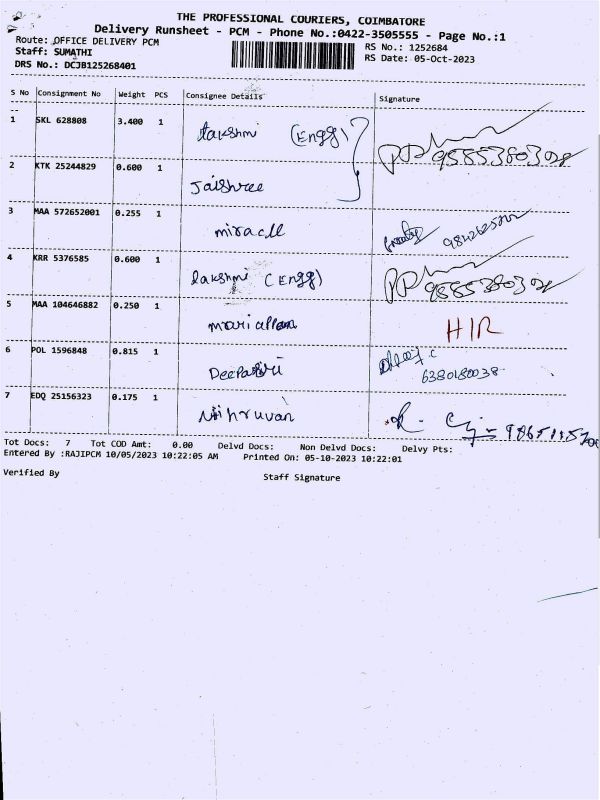 THE PROFESSIONAL COURIERS, COIMBATORE
Delivery Runsheet - PCM - Phone No.:0422-3505555 - Page No.:1
Route: OFFICE DELIVERY PCM
RS No.: 1252684
Staff: SUMATHI
RS Date: 05-Oct-2023
DRS No.: DCJB125268401
S No Consignment No Weight PCS Consignee Details Signature
1 SKL 628808 3.400 1 Lakshmi (Engg)
9585380302
2 KTK 25244829 0.600 1 Jaishree
3 MAA 572652001 0.255 1 miracle
4 KRR 5376585 0.600 1 Lakshmi (Engg)
5 MAA 104646882 0.250 1 mariappan HIR
6 POL 1596848 0.815 1 6380180038
7 EDQ 25156323 0.175 1
Tot Docs: 7 Tot COD Amt: 0.00 Delvd Docs: Non Delvd Docs: Delvy Pts:
Entered By :RAJIPCM 10/05/2023 10:22:05 AM Printed On: 05-10-2023 10:22:01
Verified By
Staff Signature